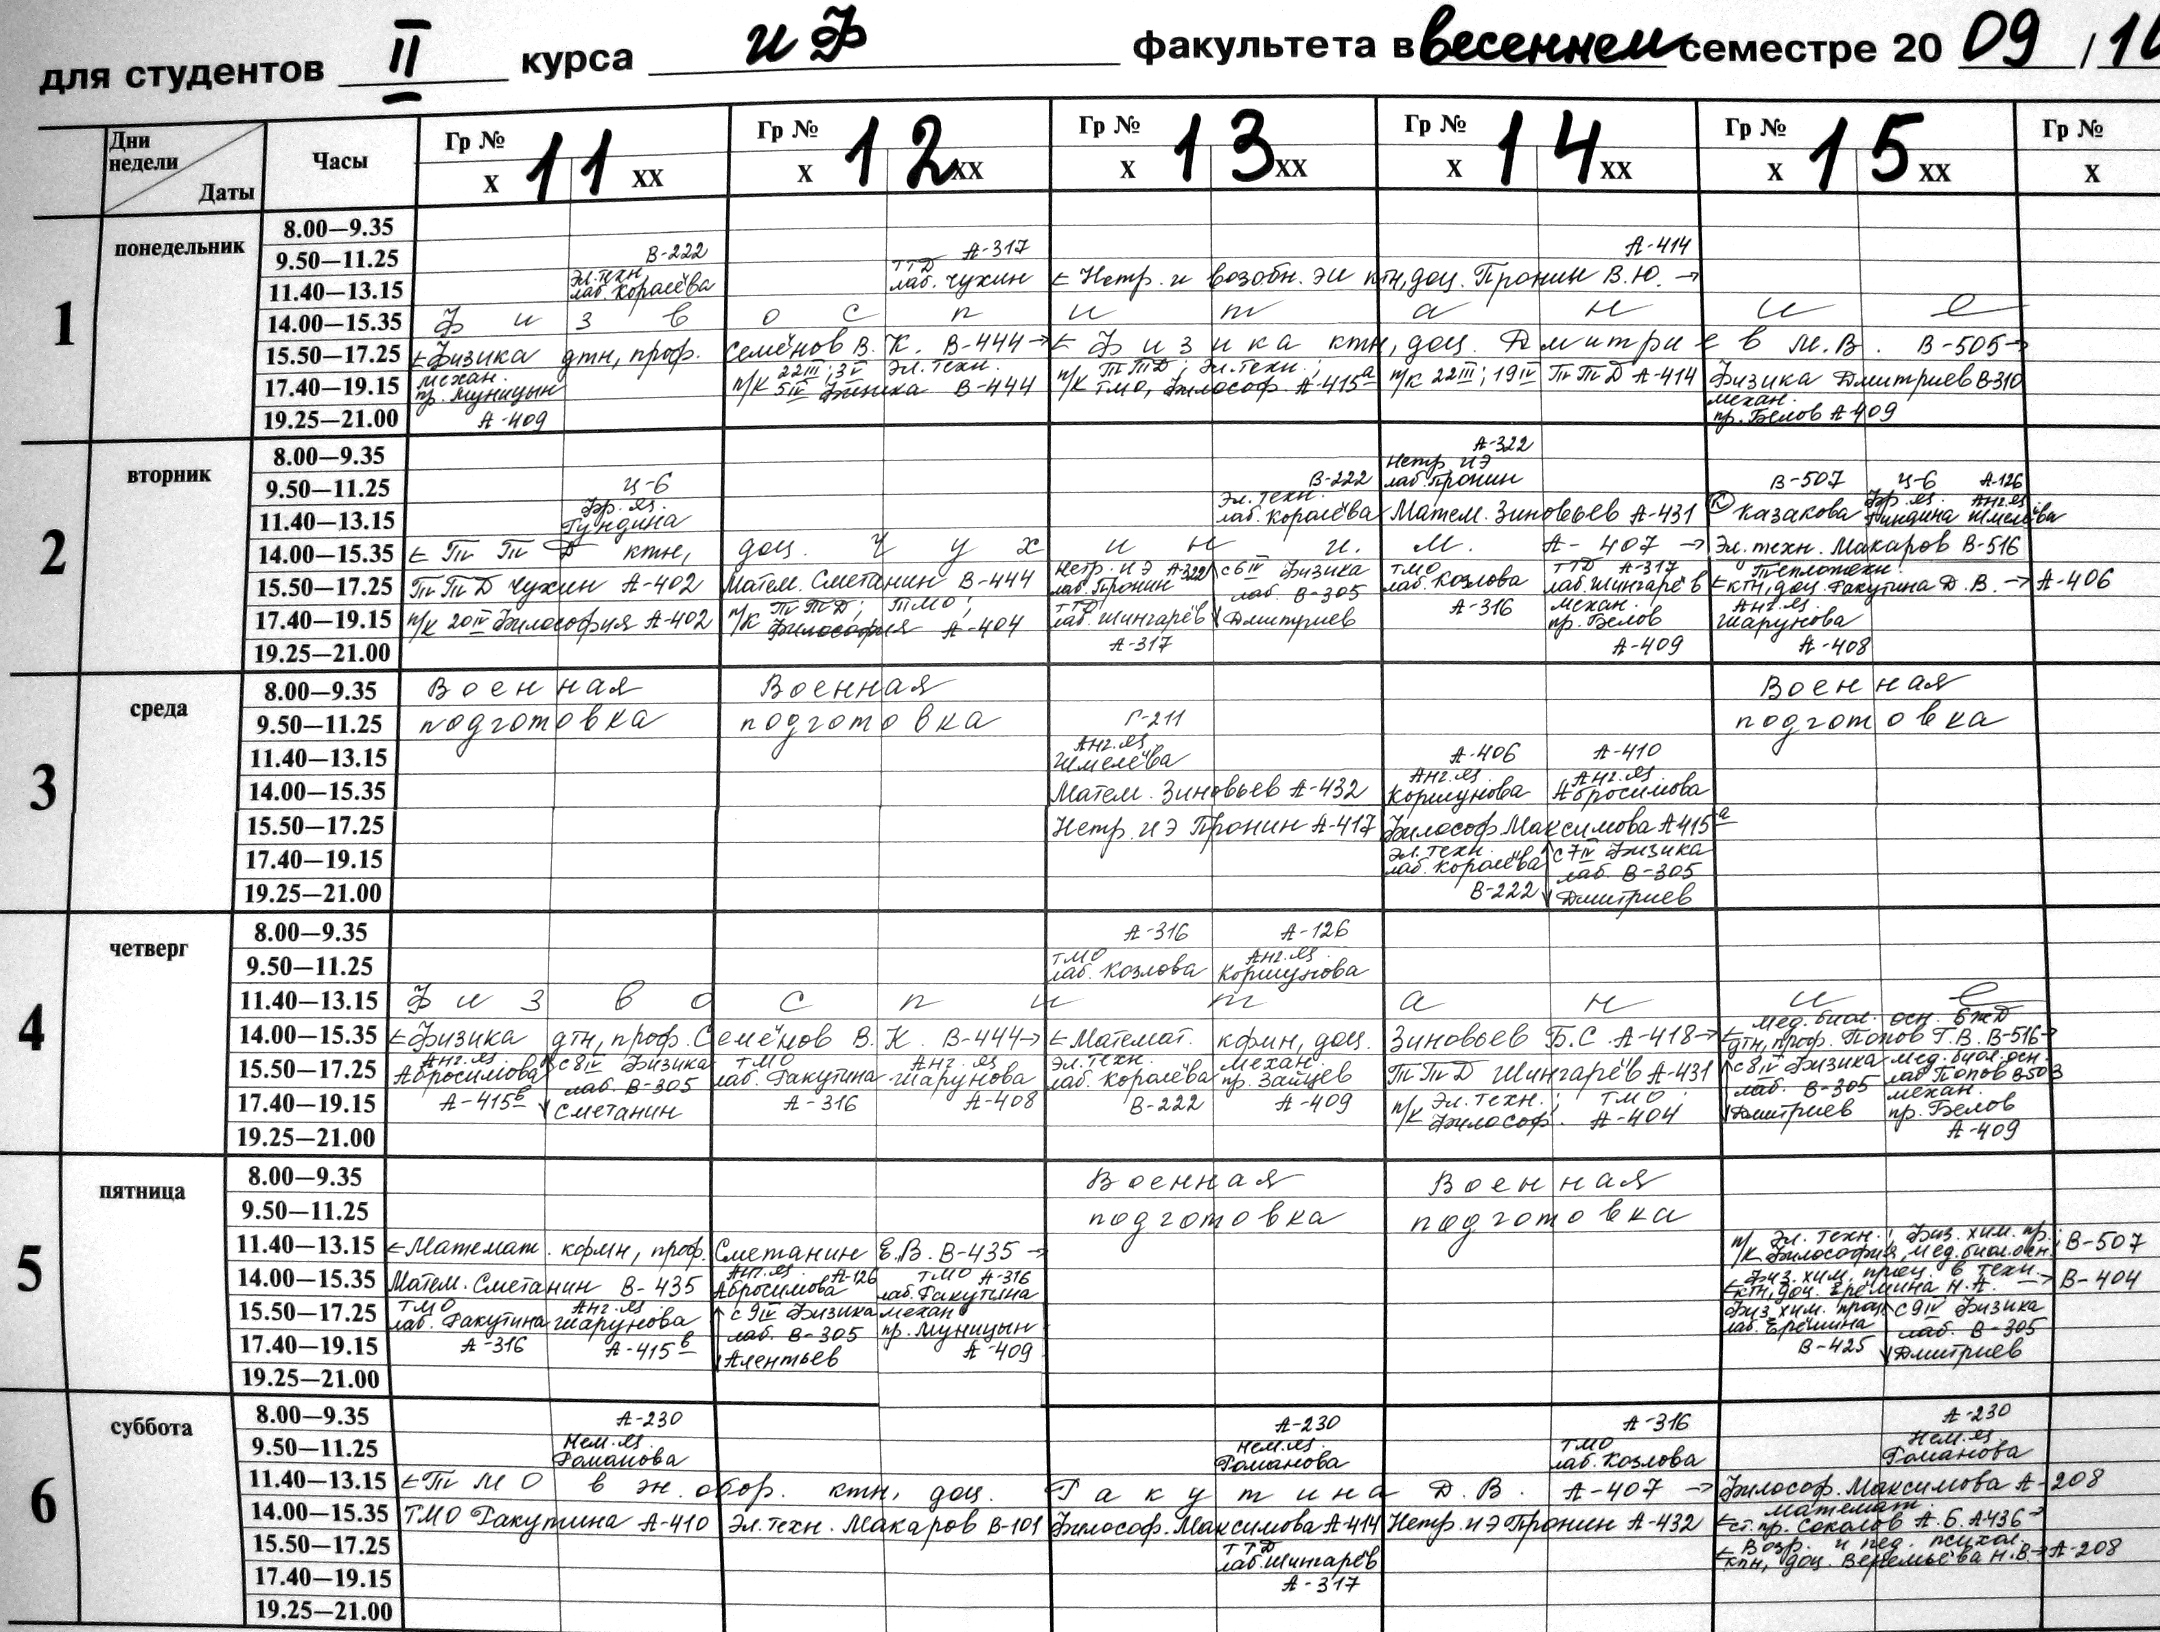 для студентов II курса ИФ факультета в весеннем семестре 2009/10
Дни недели Даты Часы Гр № 11 Гр № 12 Гр № 13 Гр № 14 Гр № 15 Гр №
х хх х хх х хх х хх х хх х
1 понедельник
8.00—9.35
9.50—11.25 В-222 А-317 А-414
11.40—13.15 Эл.техн. лаб. Королёва ТТД лаб. Чухин ← Нетр. и возобн. эи ктн, доц. Пронин В.Ю. →
14.00—15.35 Ф и з в о с п и т а н и е
15.50—17.25 ← Физика дтн, проф. Семёнов В.К. В-444 → ← Физика ктн, доц. Дмитриев М.В. В-505 →
17.40—19.15 механ. пр. Муницын п/к 22III; 3V Эл.техн. 5IV Физика В-444 п/к ТТД; Эл.техн.; ТМО, Философ. А-415а п/к 22III; 19IV ТТД А-414 Физика Дмитриев В-310
19.25—21.00 А-409 механ. пр. Белов А-409
2 вторник
8.00—9.35 А-322
9.50—11.25 Ц-6 В-222 Нетр. иЭ лаб. Пронин В-507 Ц-6 А-126
11.40—13.15 Фр. яз. Гундина Эл.техн. лаб. Королёва Матем. Зиновьев А-431 К Казакова Фр. яз. Гундина Анг.яз Шмелёва
14.00—15.35 ← ТТД ктн, доц. Чухин И.М. А-407 → Эл.техн. Макаров В-516
15.50—17.25 ТТД Чухин А-402 Матем. Сметанин В-444 Нетр. иЭ А-322 лаб. Пронин с 6IV Физика лаб. В-305 ТМО лаб. Козлова ТТД А-317 лаб. Шингарёв Теплотехн. ← ктн, доц. Ракутина Д.В. → А-406
17.40—19.15 п/к 20IV Философия А-402 п/к ТТД; ТМО; Философия А-404 ТТД лаб. Шингарёв Дмитриев А-316 механ. пр. Белов Анг.яз. Шарунова
19.25—21.00 А-317 А-409 А-408
3 среда
8.00—9.35 Военная Военная Военная
9.50—11.25 подготовка подготовка Г-211 подготовка
11.40—13.15 Анг.яз Шмелёва А-406 А-410
14.00—15.35 Матем. Зиновьев А-432 Анг.яз. Коршунова Анг.яз. Абросимова
15.50—17.25 Нетр. иЭ Пронин А-417 Философ. Максимова А415а
17.40—19.15 Эл.техн. лаб. Королёва с 7IV Физика лаб. В-305
19.25—21.00 В-222 Дмитриев
4 четверг
8.00—9.35 А-316 А-126
9.50—11.25 ТМО лаб. Козлова Анг.яз. Коршунова
11.40—13.15 Ф и з в о с п и т а н и е
14.00—15.35 ← Физика дтн, проф. Семёнов В.К. В-444 → ← Математ. кфмн, доц. Зиновьев Б.С. А-418 → мед. биол. осн. БжД ← дтн, проф. Попов Г.В. В-516 →
15.50—17.25 Анг.яз. Абросимова с 8IV Физика лаб. В-305 ТМО лаб. Ракутина Анг.яз Шарунова Эл.техн. лаб. Королёва механ. пр. Зайцев ТТД Шингарёв А-431 с 8IV Физика лаб. В-305 мед. биол. осн. лаб. Попов В-503
17.40—19.15 А-415в Сметанин А-316 А-408 В-222 А-409 п/к Эл.техн.; ТМО; Философ. А-404 Дмитриев механ. пр. Белов
19.25—21.00 А-409
5 пятница
8.00—9.35 Военная Военная
9.50—11.25 подготовка подготовка
11.40—13.15 ← Математ. кфмн, проф. Сметанин Е.В. В-435 → п/к Эл.техн.; Физ. хим. пр.; Философия, мед. биол. осн. В-507
14.00—15.35 Матем. Сметанин В-435 Анг.яз А-126 Абросимова ТМО А-316 лаб. Ракутина ← Физ. хим. проц. в техн. ктн, доц. Ерёмина Н.А. → В-404
15.50—17.25 ТМО лаб. Ракутина Анг.яз Шарунова с 9IV Физика лаб. В-305 механ пр. Муницын Физ. хим. проц. лаб. Ерёмина с 9IV Физика лаб. В-305
17.40—19.15 А-316 А-415в Алентьев А-409 В-425 Дмитриев
19.25—21.00
6 суббота
8.00—9.35 А-230 А-230 А-316 А-230
9.50—11.25 Нем.яз. Романова Нем.яз. Романова ТМО лаб. Козлова Нем.яз. Романова
11.40—13.15 ← ТМО в эн. обор. ктн, доц. Ракутина Д.В. А-407 → Философ. Максимова А-208
14.00—15.35 ТМО Ракутина А-410 Эл.техн. Макаров В-101 Философ. Максимова А-414 Нетр. иЭ Пронин А-432 математ. ← ст.пр. Соколов А.Б. А-436 →
15.50—17.25 ТТД лаб. Шингарёв ← Возр. и пед. психол. кпн, доц. Веремьёва Н.В. → А-208
17.40—19.15 А-317
19.25—21.00